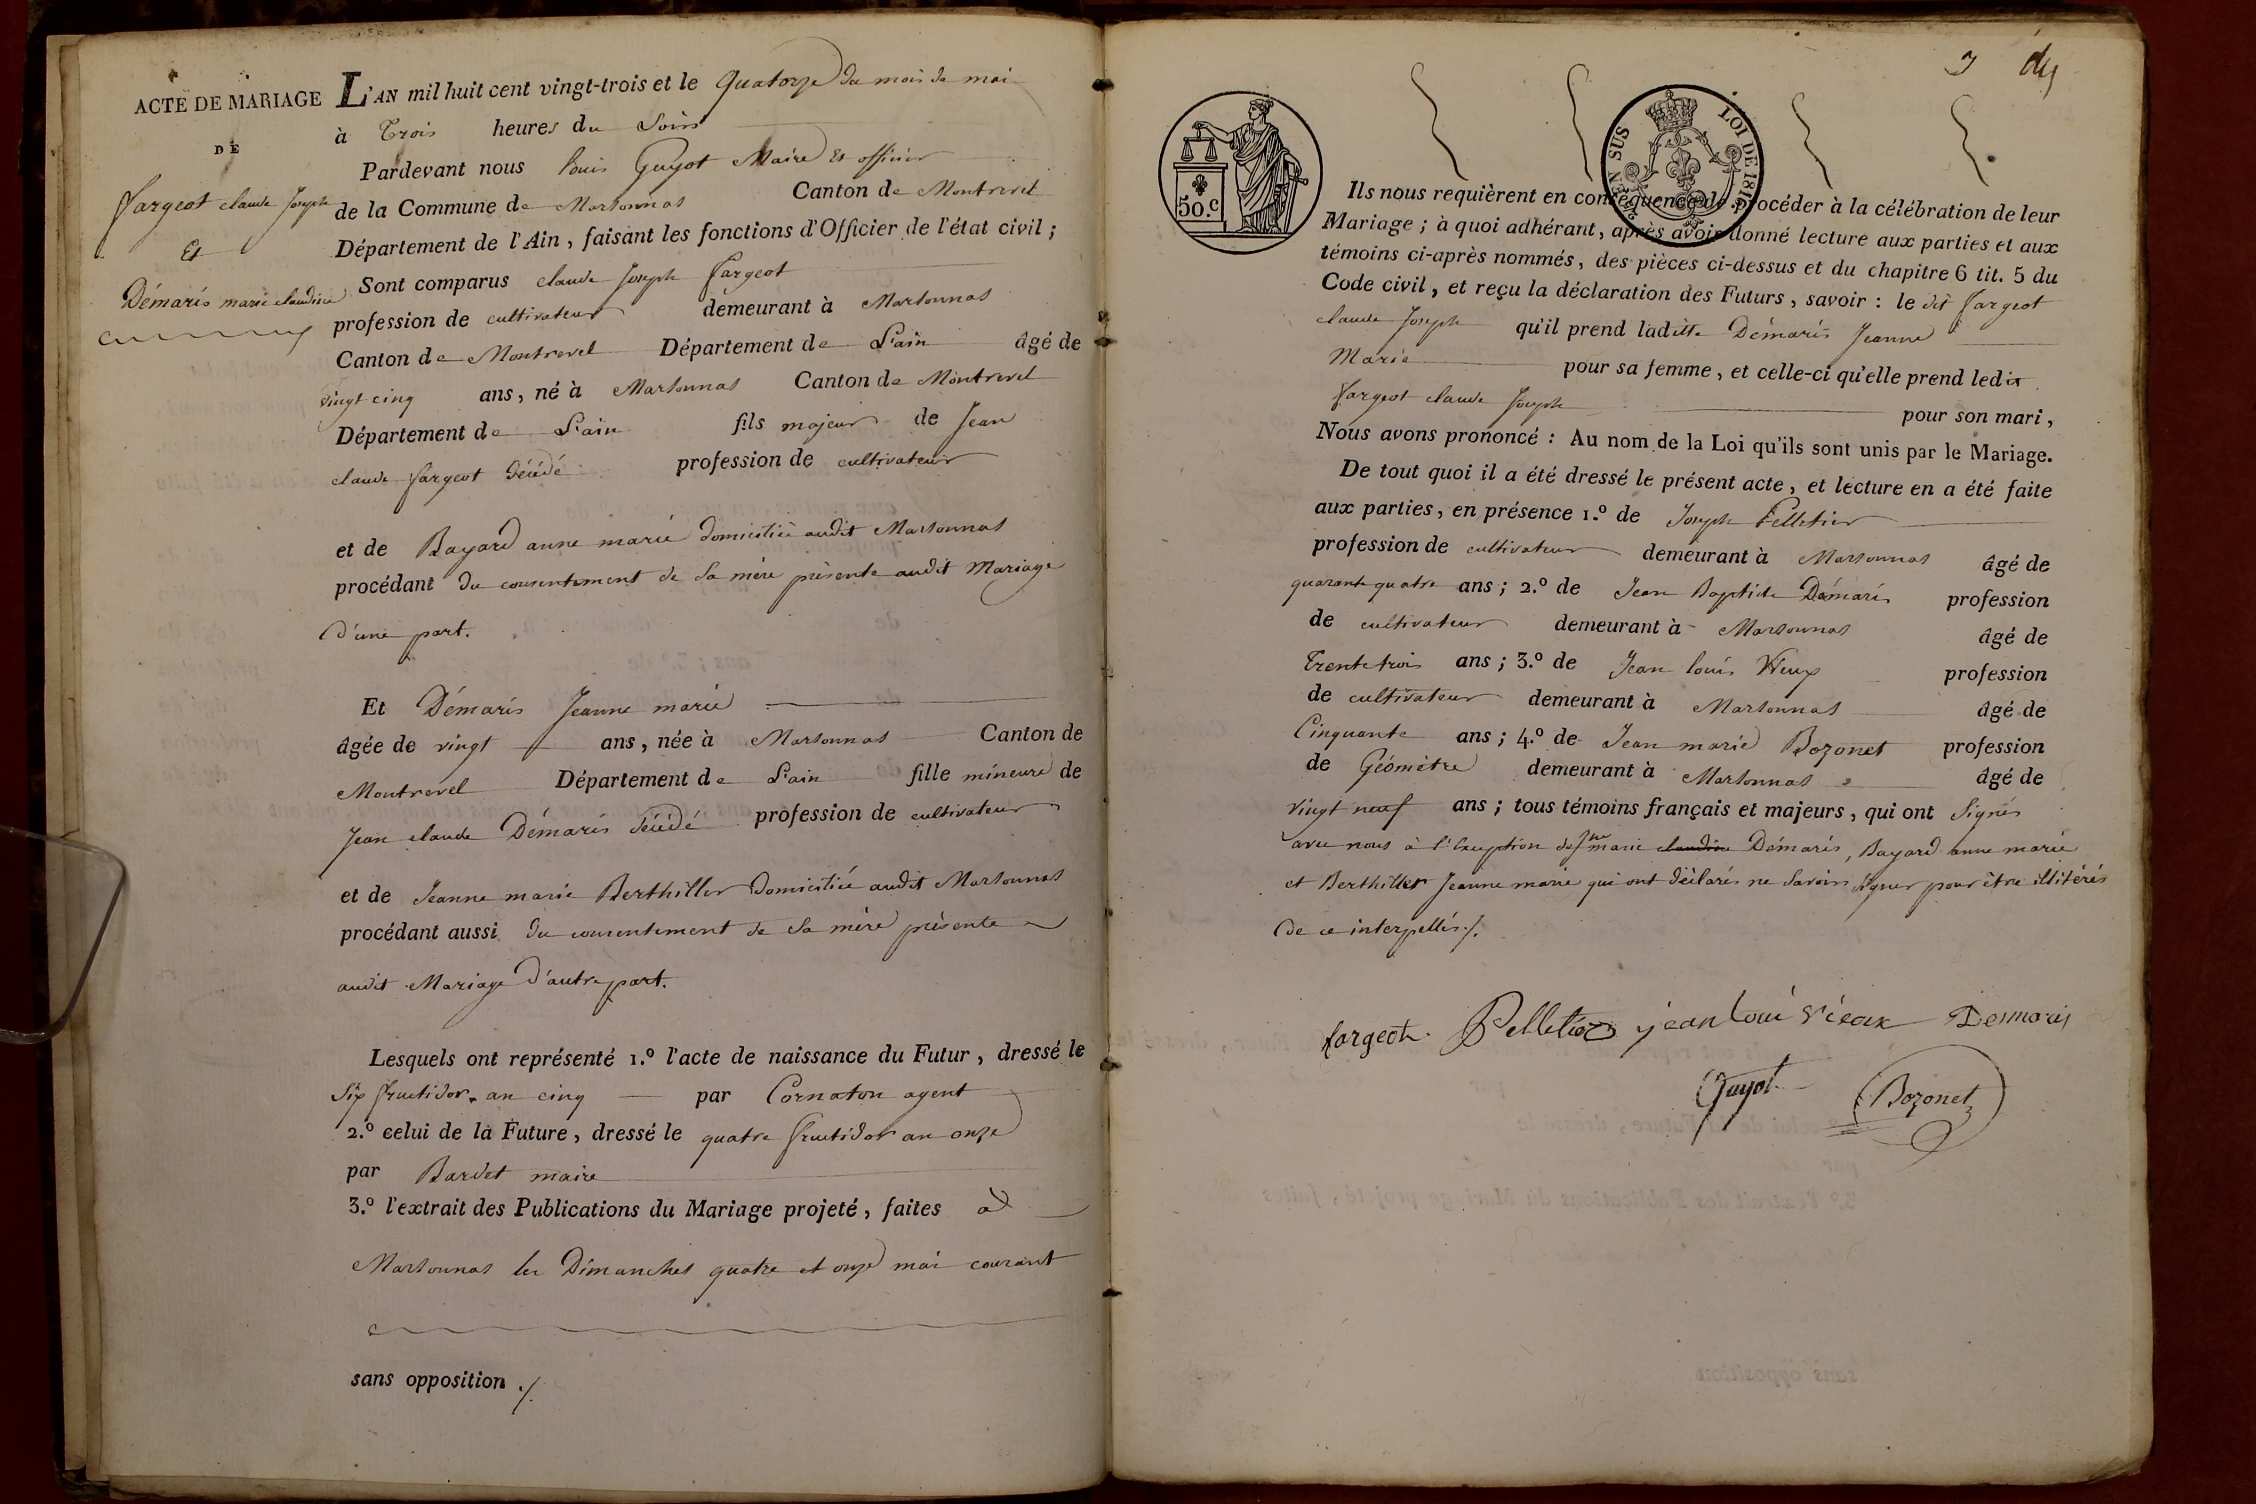 ACTE DE MARIAGE
DE
Fargeot claude Joseph
Et
Démaris marie claudine
L'AN mil huit cent vingt-trois et le Quatorze du mois de mai
à Trois heures du Soir
Pardevant nous Louis Guyot Maire et officier
de la Commune de Marsonnas Canton de Montrevel
Département de l'Ain, faisant les fonctions d'Officier de l'état civil ;
Sont comparus claude Joseph Fargeot
profession de cultivateur demeurant à Marsonnas
Canton de Montrevel Département de L'ain âgé de
vingt cinq ans, né à Marsonnas Canton de Montrevel
Département de L'ain fils majeur de Jean
claude fargeot décédé profession de cultivateur
et de Bayard anne marie domiciliée audit Marsonnas
procédant du consentement de sa mère présente audit Mariage
d'une part.
Et Démaris Jeanne marie
âgée de vingt ans, née à Marsonnas Canton de
Montrevel Département de L'ain fille mineure de
Jean claude Démaris décédé profession de cultivateur
et de Jeanne marie Berthiller domiciliée audit Marsonnas
procédant aussi du consentement de sa mère présente
audit Mariage d'autre part.
Lesquels ont représenté 1.º l'acte de naissance du Futur, dressé le
Six fructidor an cinq par Cornaton agent
2.º celui de la Future, dressé le quatre fructidor an onze
par Bardet maire
3.º l'extrait des Publications du Mariage projeté, faites à
Marsonnas les Dimanches quatre et onze mai courant
sans opposition ./.
3
50.C
LOI DE 1816.
EN SUS
Ils nous requièrent en conséquence de procéder à la célébration de leur
Mariage ; à quoi adhérant, après avoir donné lecture aux parties et aux
témoins ci-après nommés, des pièces ci-dessus et du chapitre 6 tit. 5 du
Code civil, et reçu la déclaration des Futurs, savoir : le dit Fargeot
claude Joseph qu'il prend ladite Démaris Jeanne
Marie pour sa femme, et celle-ci qu'elle prend ledit
Fargeot claude Joseph pour son mari,
Nous avons prononcé : Au nom de la Loi qu'ils sont unis par le Mariage.
De tout quoi il a été dressé le présent acte, et lecture en a été faite
aux parties, en présence 1.º de Joseph Pelletier
profession de cultivateur demeurant à Marsonnas âgé de
quarante quatre ans ; 2.º de Jean Baptiste Démaris profession
de cultivateur demeurant à Marsonnas âgé de
Trente trois ans ; 3.º de Jean louis Vieux profession
de cultivateur demeurant à Marsonnas âgé de
Cinquante ans ; 4.º de Jean marie Bozonet profession
de Géomètre demeurant à Marsonnas âgé de
vingt neuf ans ; tous témoins français et majeurs, qui ont Signés
avec nous à l'Exception de Jne marie claudine Démaris, Bayard anne marie
et Berthiller Jeanne marie qui ont déclarés ne Savoir signer pour être illitérés
de ce interpellés ./.
fargeot Pelletier jean loui vieax Demaris
Guyot Bozonet